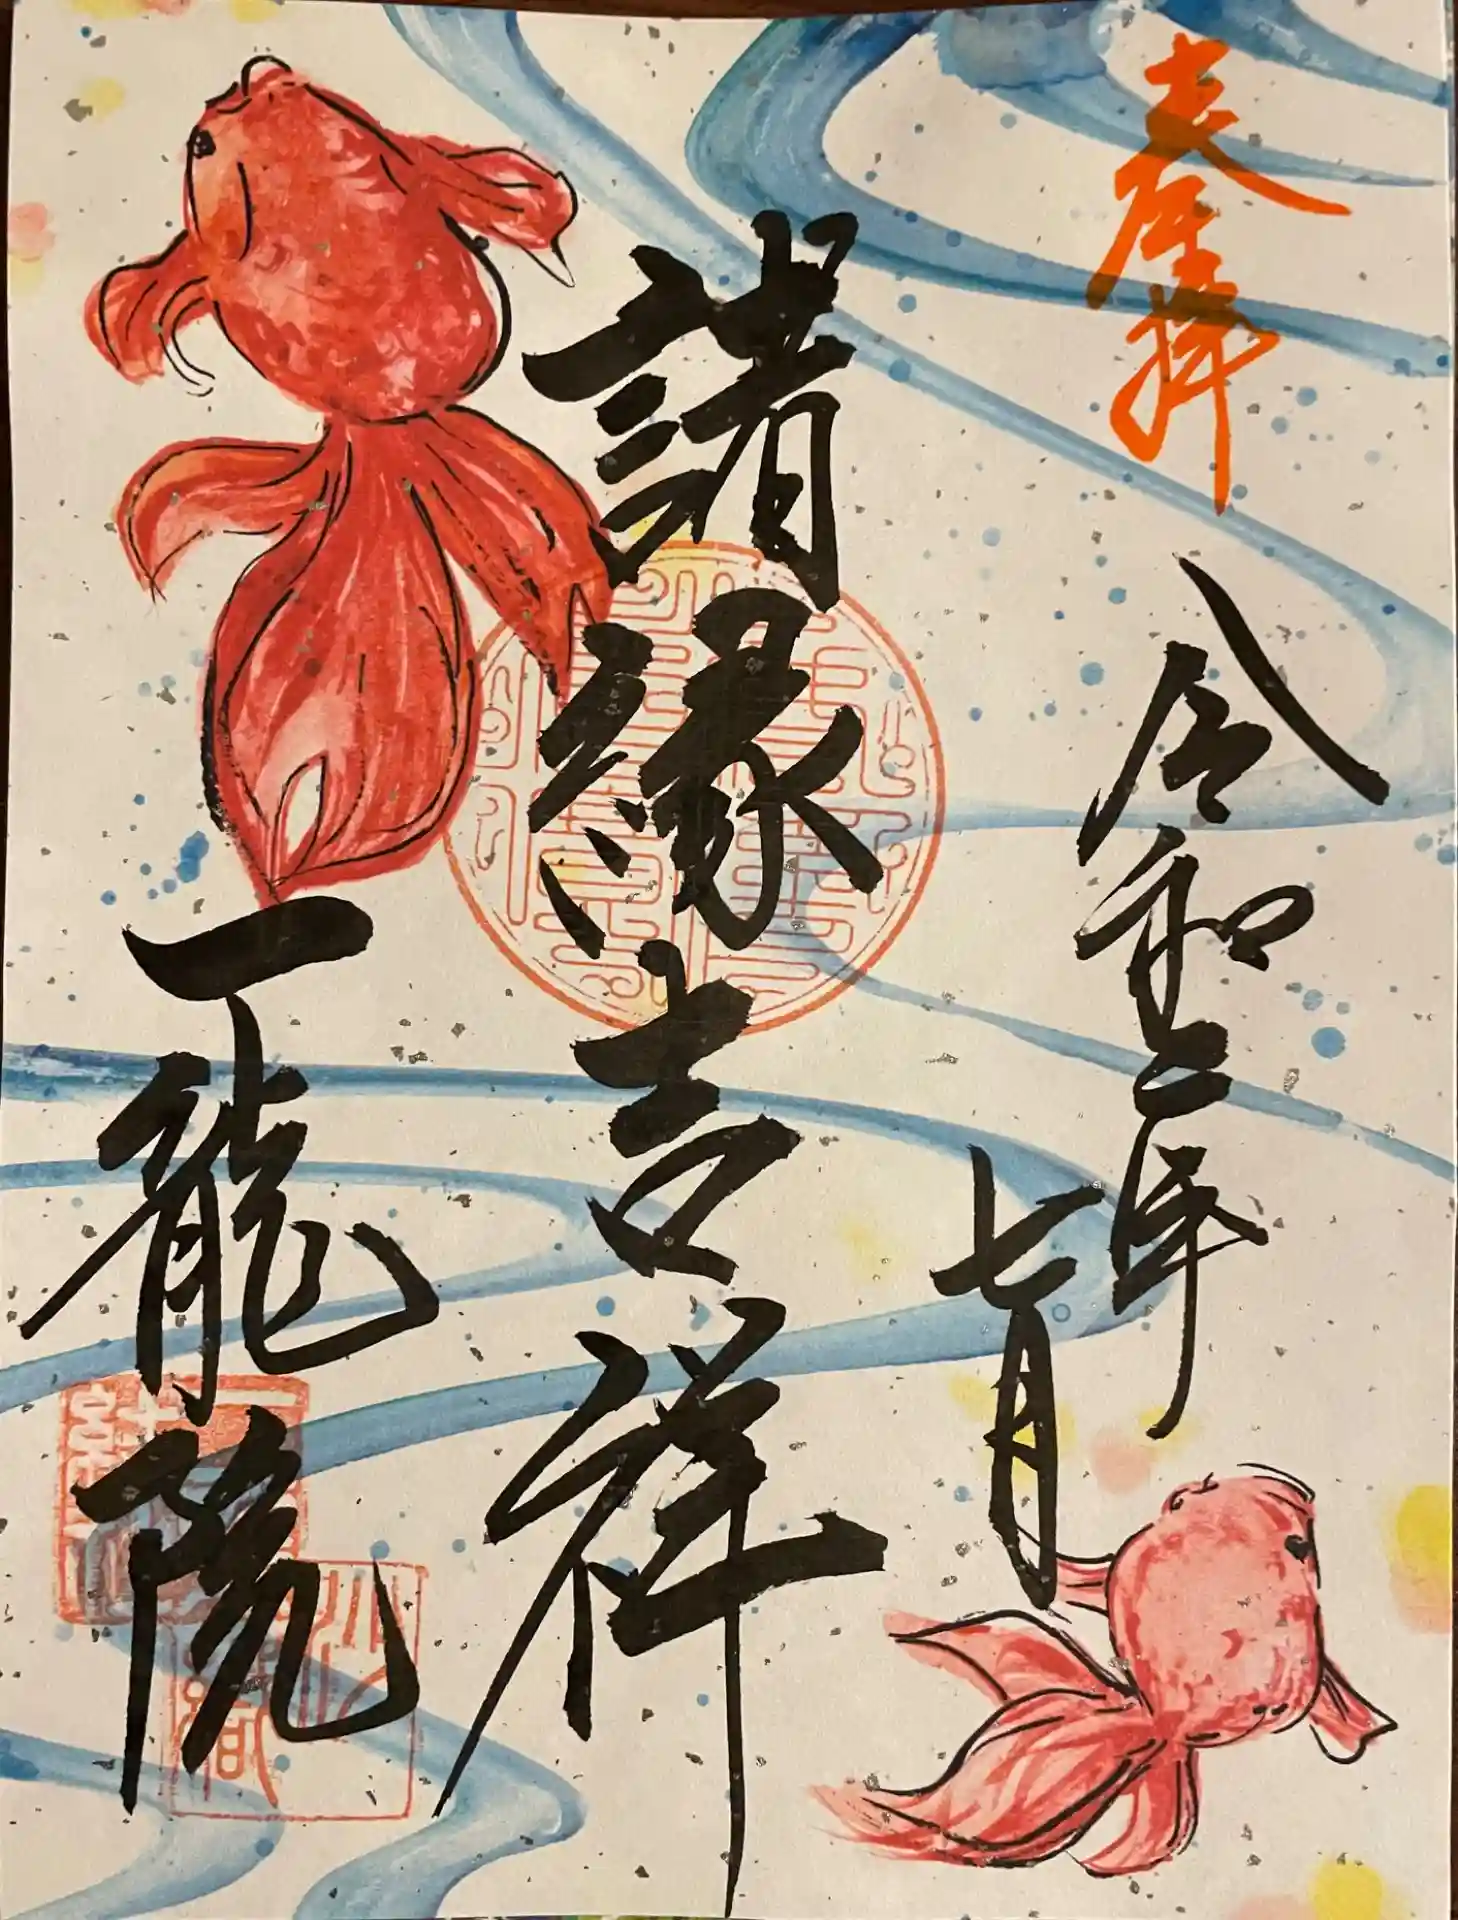 奉拝
令和五年
七月
諸縁吉祥
一龍院